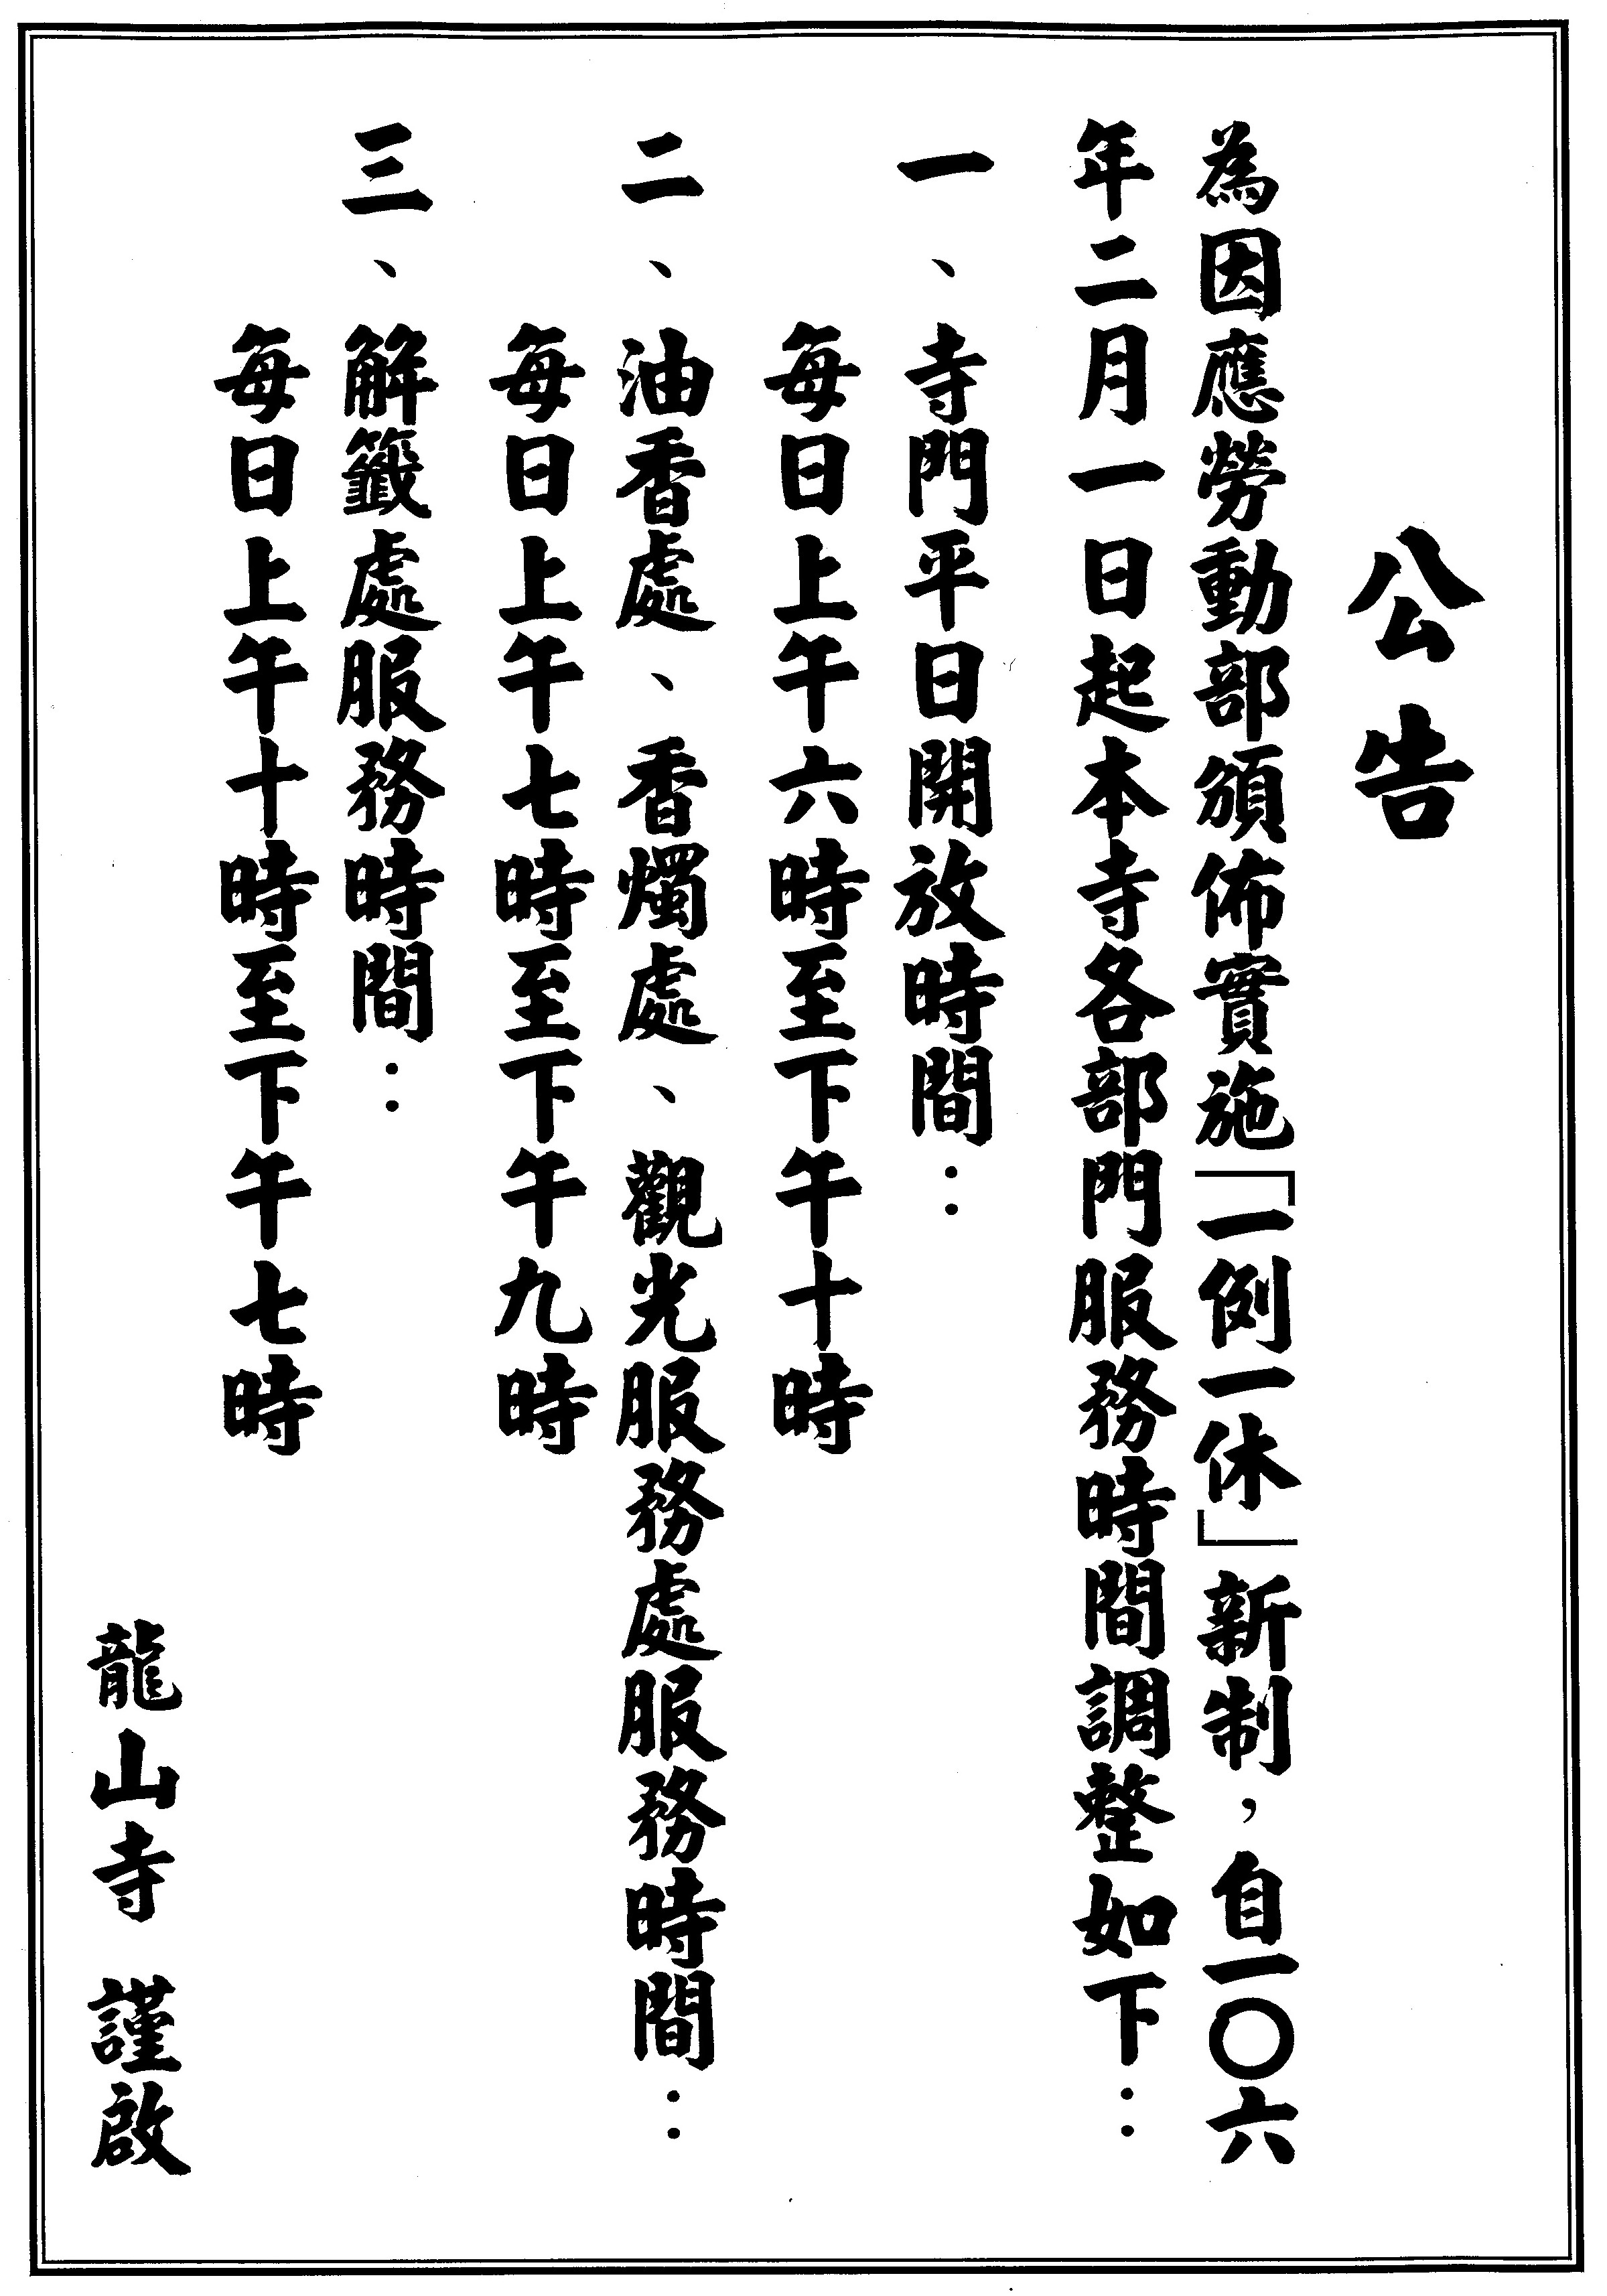 公告
為因應勞動部頒佈實施「一例一休」新制，自一〇六
年二月一日起本寺各部門服務時間調整如下：
一、寺門平日開放時間：
每日上午六時至下午十時
二、油香處、香燭處、觀光服務處服務時間：
每日上午七時至下午九時
三、解籤處服務時間：
每日上午十時至下午七時
龍山寺 謹啟